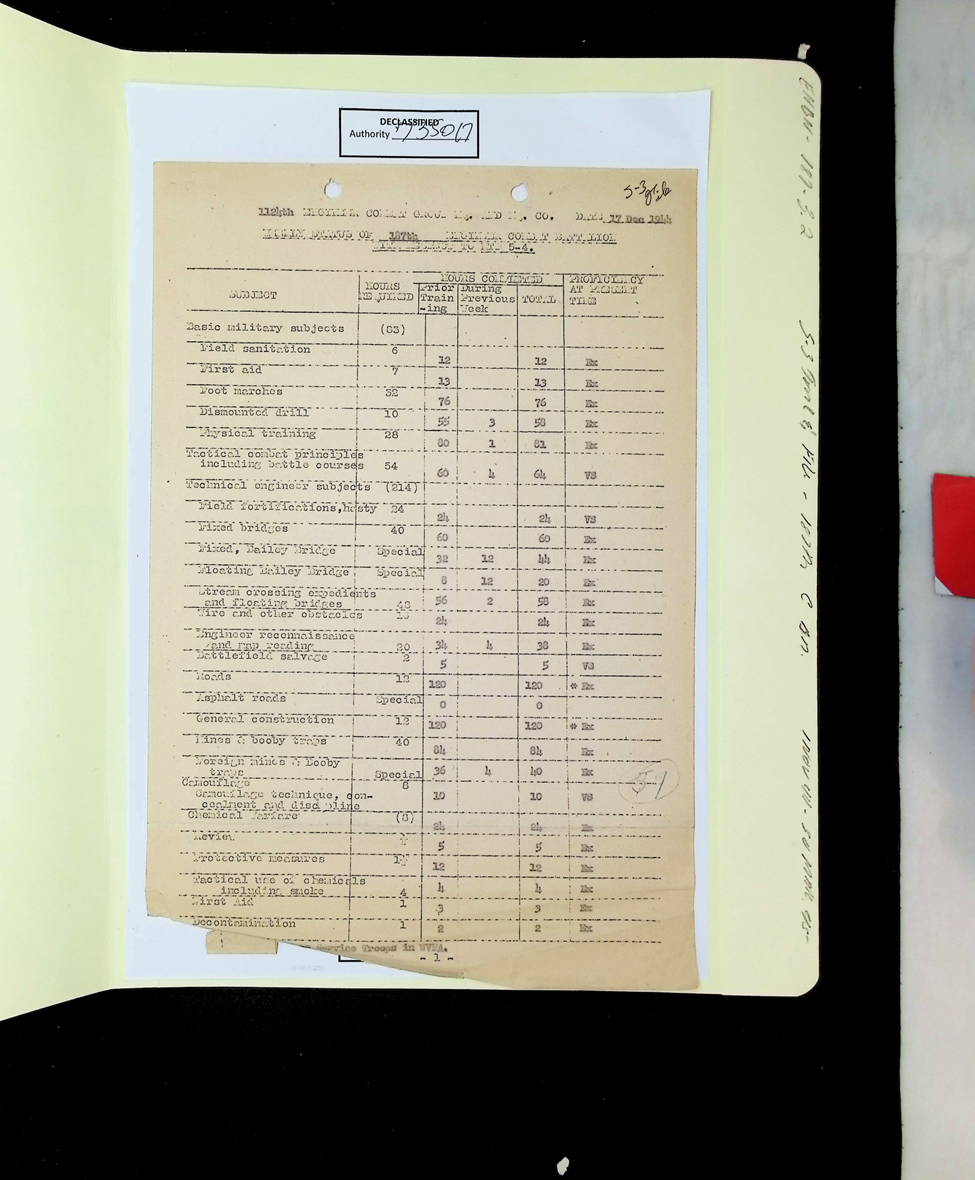 DECLASSIFIED
Authority 735017
S-3 file
1124th ENGINEER COMBAT GROUP HQ. AND HQ. CO. DATE 17 Dec 1944
STATUS OF 187th ENGINEER COMBAT BATTALION
TO 5-4.
SUBJECT HOURS REQUIRED HOURS COMPLETED PROFICIENCY AT PRESENT TIME
Prior Train-ing During Previous Week TOTAL
Basic military subjects (83)
Field sanitation 6 12 12 Ex
First aid 7 13 13 Ex
Foot marches 32 76 76 Ex
Dismounted drill 10 55 3 58 Ex
Physical training 28 80 1 81 Ex
Tactical combat principles
including battle courses 54 60 4 64 VS
Technical engineer subjects (214)
Field fortifications, hasty 24 24 24 VS
Fixed bridges 40 60 60 Ex
Fixed, Bailey Bridge Special 32 12 44 Ex
Floating Bailey Bridge Special 8 12 20 Ex
Stream crossing expedients
and floating bridges 56 2 58 Ex
Wire and other obstacles 24 24 Ex
Engineer reconnaissance
and map reading 20 34 4 38 Ex
Battlefield salvage 2 5 5 VS
Roads 12 120 120 * Ex
Asphalt roads Special 0 0
General construction 12 120 120 * Ex
Mines & booby traps 40 84 84 Ex
Foreign mines & Booby
traps Special 36 4 40 Ex
Camouflage 8
Camouflage technique, con-
cealment and discipline 10 10 VS
Chemical Warfare (8) 24 24 Ex
Review 5 5 Ex
Protective measures 12 12 Ex
Tactical use of chemicals
including smoke 4 4 4 Ex
First Aid 1 3 3 Ex
Decontamination 1 2 2 Ex
Service Troops in
- 1 -
ENBN-187-3.2
S-3